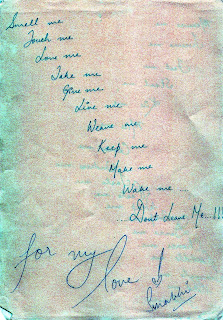 Smell me
Touch me
Love me
Take me
Give me
Live me
Weave me
Keep me
Make me
Wake me ...
... Dont Leave Me...!!!
for my
love